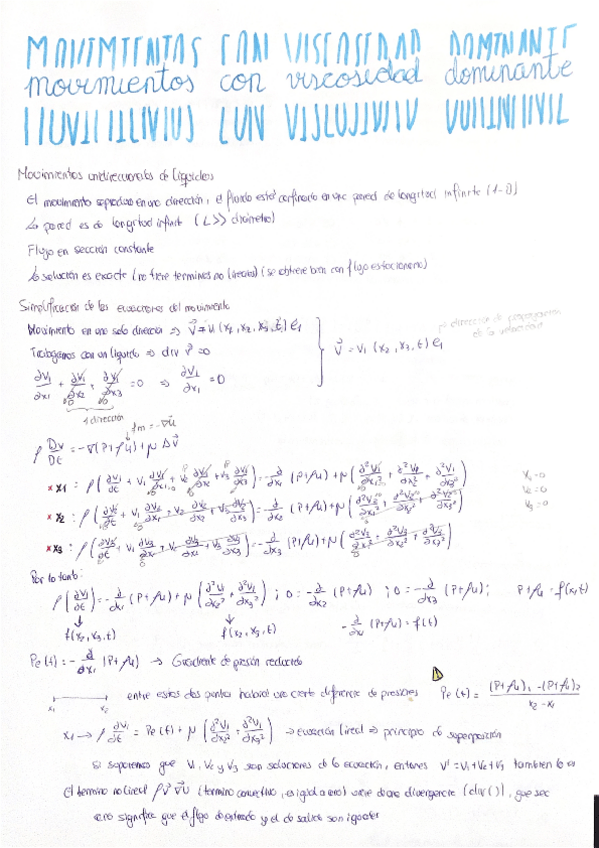 movimientos con viscosidad dominante
Movimientos unidireccionales de líquidos
El movimiento se produce en una dirección, el fluido está confinado en una pared de longitud infinita (1-D)
La pared es de longitud infinita (L>> diámetro)
Flujo en sección constante
La solución es exacta (no tiene términos no lineales) (se obtiene bien con flujo estacionario)
Simplificación de las ecuaciones del movimiento
Movimiento en una sola dirección ⇒ v⃗ = u (x₁, x₂, x₃, t) e₁
Trabajamos con un líquido ⇒ div v⃗ = 0
v⃗ = v₁ (x₂, x₃, t) e₁
∂v₁/∂x₁ + ∂v₂/∂x₂ + ∂v₃/∂x₃ = 0 ⇒ ∂v₁/∂x₁ = 0
1 dirección
fm = -∇u
ρ Dv/Dt = -∇(P+ρu) + μ Δv⃗
x x₁ : ρ(∂v₁/∂t + v₁ ∂v₁/∂x₁ + v₂ ∂v₁/∂x₂ + v₃ ∂v₁/∂x₃) = -∂/∂x₁ (P+ρu) + μ(∂²v₁/∂x₁² + ∂²v₁/∂x₂² + ∂²v₁/∂x₃²)
x x₂ : ρ(∂v₂/∂t + v₁ ∂v₂/∂x₁ + v₂ ∂v₂/∂x₂ + v₃ ∂v₂/∂x₃) = -∂/∂x₂ (P+ρu) + μ(∂²v₂/∂x₁² + ∂²v₂/∂x₂² + ∂²v₂/∂x₃²)
x x₃ : ρ(∂v₃/∂t + v₁ ∂v₃/∂x₁ + v₂ ∂v₃/∂x₂ + v₃ ∂v₃/∂x₃) = -∂/∂x₃ (P+ρu) + μ(∂²v₃/∂x₁² + ∂²v₃/∂x₂² + ∂²v₃/∂x₃²)
Por lo tanto:
ρ(∂v₁/∂t) = -∂/∂x₁ (P+ρu) + μ(∂²v₁/∂x₂² + ∂²v₁/∂x₃²) ; 0 = -∂/∂x₂ (P+ρu) ; 0 = -∂/∂x₃ (P+ρu) ; P+ρu = f(x₁,t)
f(x₂, x₃, t) f(x₂, x₃, t) -∂/∂x₁ (P+ρu) = f(t)
Pe(t) = -∂/∂x₁ (P+ρu) → Gradiente de presión reducido
x₁ x₂ entre estos dos puntos habrá una cierta diferencia de presiones Pe(t) = ((P+ρu)₁ - (P+ρu)₂)/(x₂ - x₁)
x₁ → ρ ∂v₁/∂t = Pe(t) + μ(∂²v₁/∂x₂² + ∂²v₁/∂x₃²) → ecuación lineal → principio de superposición
Si suponemos que v₁, v₂ y v₃ son soluciones de la ecuación, entonces v' = v₁+v₂+v₃ también lo es
El término no lineal ρv⃗ ∇v⃗ (término convectivo, es igual a cero) viene de una divergencia (div()), que sea
cero significa que el flujo de entrada y el de salida son iguales